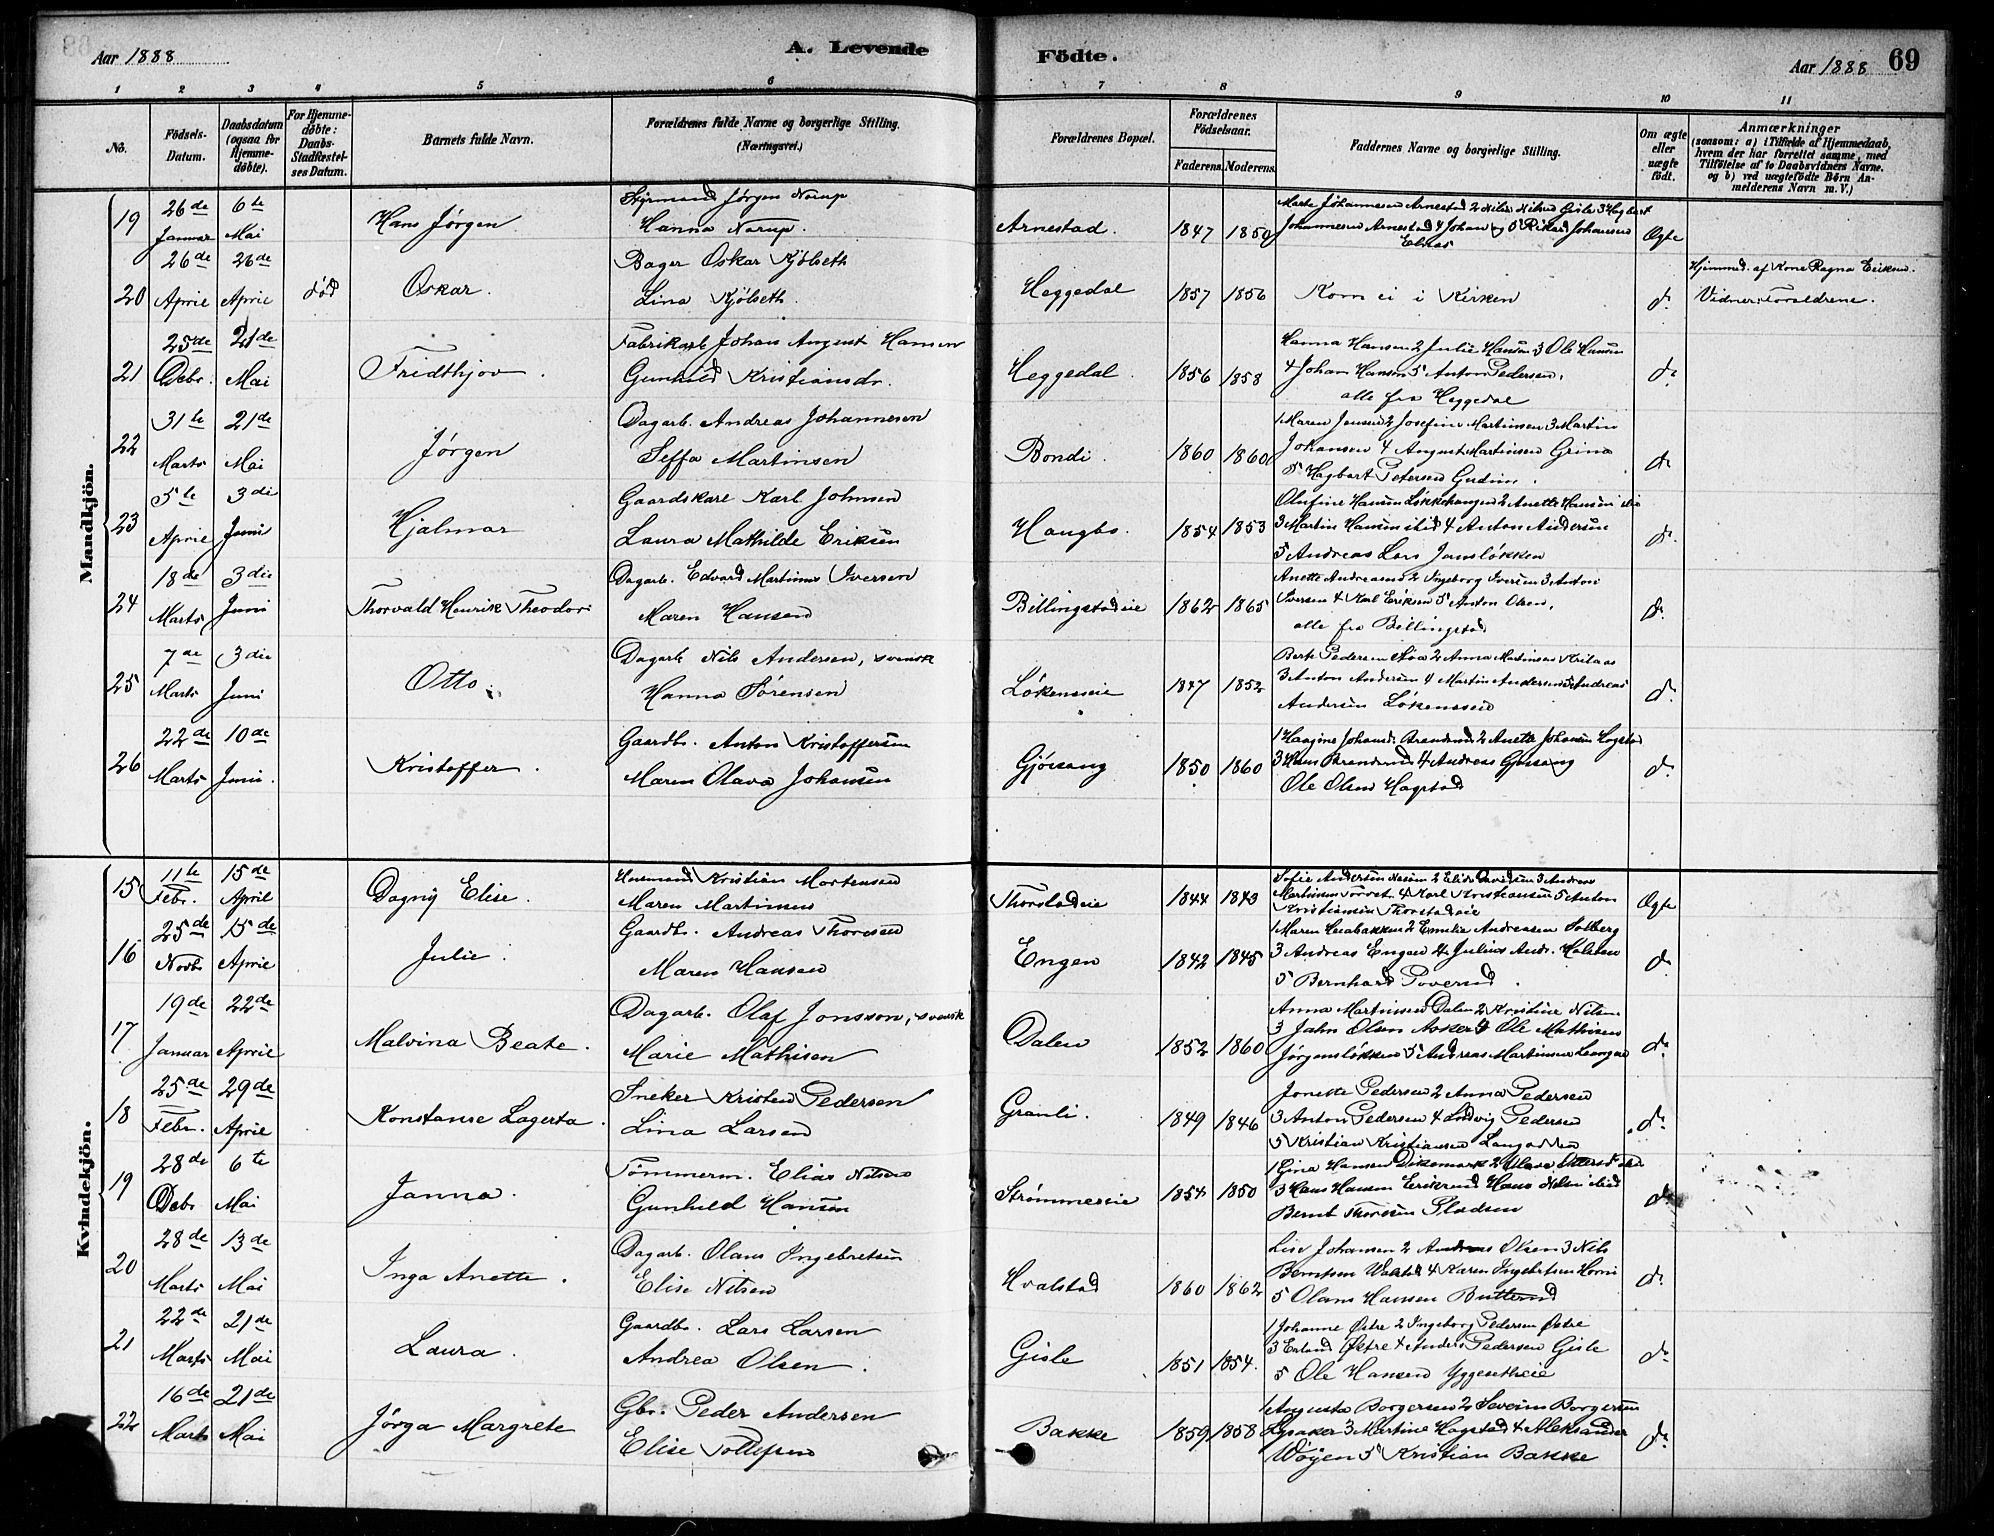 Aar 1888
A. Levende
Födte.
Aar 1888 69
1 2 3 4 5 6 7 8 9 10 11
No.
Födsels-Datum.
Daabsdatum (ogsaa for Hjemme-døbte).
For Hjemme-døbte: Daabs-Stadfæstel-ses Datum.
Barnets fulde Navn.
Forældrenes fulde Navne og borgerlige Stilling. (Næringsvei.)
Forældrenes Bopæl.
Forældrenes Födselsaar.
Faderens. Moderens.
Faddernes Navne og borgerlige Stilling.
Om ægte eller uægte født.
Anmærkninger
(saasom: a) i Tilfælde af Hjemmedaab,
hvem der har forrettet samme, med
Tilføielse af to Daabsvidners Navne.
og b) ved uægtefødte Børn An-
melderens Navn m. V.)
Mandkjön.
19 26de Januar 6te Mai Hans Jørgen Styrmand Jørgen Narup
Hanna Narup. Arnestad. 1847 1850 Marte Johannesen Arnestad 2 Nilsen Gisle 3 Hagbart
Johannesen Arnestad 4 Johan og 5 Rikard Johansen
Elnæs Ægte
20 26de April 26de April død Oskar. Bager Oskar Kjølseth
Lina Kjølseth. Heggedal 1857 1856 Kom ei i Kirken do Hjemmed. af Kone Ragna Eriksen.
Vidner: Forældrene.
21 25de Decbr. 21de Mai Fridthjov. Fabrikarb Johan August Hansen
Gunhild Kristiansdr. Heggedal. 1856 1858 Hanna Hansen 2 Julie Hansen 3 Ole Hansen
4 Johan Hansen 5 Anton Pedersen.
alle fra Heggedal do
22 31te Marts 21de Mai Jørgen Dagarb. Andreas Johannesen
Seffa Martinsen Bondi. 1860 1860 1 Maren Jensen 2 Josefine Martinsen 3 Martin
Johansen 4 August Martinsen Grina
5 Hagbart Petersen Gudim. do
23 5te April 3die Juni Hjalmar Gaardskarl Karl Johnsen
Laura Mathilde Eriksen Haugbo. 1854 1853 Olufine Hansen Løkkehaugen 2 Anette Hansen
3 Martin Hansen ibid 4 Anton Andersen
5 Andreas Lars Jansløkken do
24 18de Marts 3die Juni Thorvald Henrik Theodor Dagarb. Edvard Martinus Iversen
Maren Hansen Billingstadeie 1862 1865 Anette Andreasen 2 Ingeborg Iversen 3 Anton
Iversen 4 Karl Eriksen 5 Anton Olsen.
alle fra Billingstad do
25 7de Marts 3die Juni Otto. Dagarb Nils Andersen, svensk
Hanna Sørensen Løkenseie 1847 1852 Berte Pedersen 2 Anna Martinsen
3 Anton Andersen 4 Martin Andersen 5 Andreas
Andersen Løkenseie do
26 22de Marts 10de Juni. Kristoffer. Gaardbr. Anton Kristoffersen
Maren Olava Johansen Gjøsang 1850 1860 1 Haagine Johansd. Brendsrud 2 Anette Johansen Hogstad
3 Hans Brendsrud 4 Andreas Gjøssang
Ole Olsen Hogstad do
Kvindekjön.
15 11te Febr. 15de April Dagny Elise. Husmand Kristian Mortensen
Maren Martinsen Thorstadeie 1844 1843 Sofie Andersen Næsøen 2 Elida Davidsen 3 Andreas
Martinsen 4 Karl Kristiansen 5 Anton
Kristiansen Thorstadeie Ægte
16 25de Novbr 15de April Julie. Gaardbr. Andreas Thoresen
Maren Hansen Engen 1842 1845 1 Maren 2 Emelie Andreasen Solberg
3 Andreas Engen 4 Julius Andr. Holsten
5 Bernhard Poverud. do
17 19de Januar 22de April Malvina Beate. Dagarb. Olaf Jonsson, svensk
Marie Mathisen Dalen 1852 1860 Anna Martinsen Dalen 2 Kristine Nilsen
3 Jahn Olsen Asker 4 Ole Mathisen
Jørgensløkken 5 Andreas Martinsen do
18 25de Febr. 29de April Konstanse Lagerta. Sneker Kristen Pedersen
Lina Larsen Granli. 1849 1846 Jonette Pedersen 2 Anna Pedersen
3 Anton Pedersen 4 Ludvig Pedersen
5 Kristian Kristiansen do
19 28de Decbr 6te Mai Janna. Tømmerm. Elias Nilsen
Gunhild Hansen Strømmeseie 1854 1850 1 Gina Hansen Dikemark 2 Olava
3 Hans Hansen Hans Nilsen ibid
Bernt Thoresen Pladsen do
20 28de Marts 13de Mai Inga Anette. Dagarb. Olaus Ingebretsen
Elise Nilsen Hvalstad 1860 1862 Lise Johansen 2 Andreas Olsen 3 Nils
Berntsen 4 Karen Ingebretsen
5 Olaus Hansen Butterud do
21 22de Marts 21de Mai Laura. Gaardbr. Lars Larsen
Andrea Olsen. Gisle 1851 1854. 1 Johanne Østre 2 Ingeborg Pedersen Østre
3 Erland Østre 4 Anders Pedersen Gisle
5 Ole Hansen Yggesetheie do
22 16de Marts 21de Mai Jørga Margrete Gbr. Peder Andersen
Elise Tollefsen Bakke 1859 1858 1 Augusta Borgersen 2 Severin Borgersen
Lysaker 3 Martine Hogstad 4 Aleksander
Wøyen 5 Kristian Bakke do